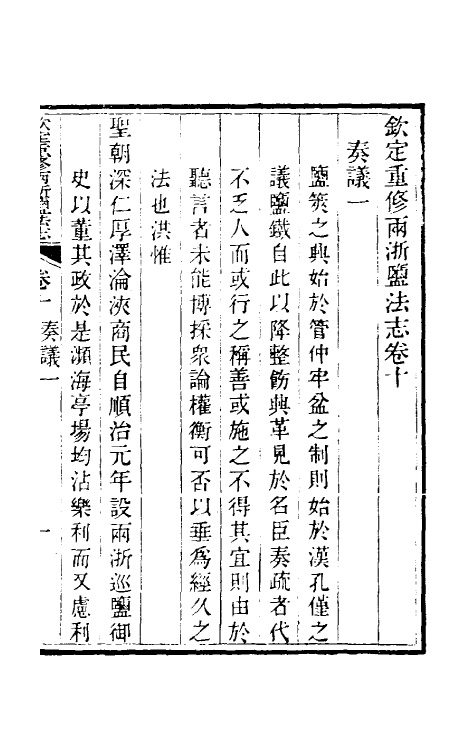 欽定重修兩浙鹽法志卷十
奏議一
鹽筴之興始於管仲牢盆之制則始於漢孔僅之
議鹽鐵自此以降整飭興革見於名臣奏疏者代
不乏人而或行之稱善或施之不得其宜則由於
聽言者未能博採衆論權衡可否以垂爲經久之
法也洪惟
聖朝深仁厚澤淪浹商民自順治元年設兩浙巡鹽御
史以董其政於是瀕海亭場均沾樂利而又慮利
欽定重修兩浙鹽法志 卷十 奏議一 一